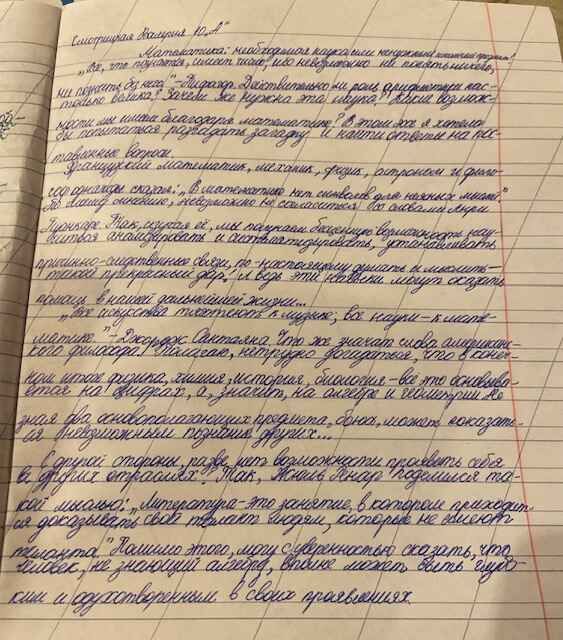 Смотрицкая Валерия 10„А"
Математика: необходимая наука, или ненужный предмет?
„Все, что познается, имеет число, ибо невозможно ни понять ничего,
ни познать без него" – Пифагор. Действительно ли роль арифметики нас-
только велика? Зачем же нужна эта наука? Какие возмож-
ности мы имеем благодаря математике? В этом же я хотела
бы попытаться разгадать загадку и найти ответы на пос-
тавленные вопросы.
Французский математик, механик, физик, астроном и фило-
соф однажды сказал: „В математике нет символов для неясных мыслей."
По моему мнению, невозможно не согласиться со словами Анри
Пуанкаре. Так, изучая её, мы получаем бесценную возможность нау-
читься анализировать и систематизировать, устанавливать
причинно-следственные связи, по-настоящему думать и мыслить –
такой прекрасный дар! А ведь эти навыки могут оказать
помощь в нашей дальнейшей жизни...
„Все искусства тяготеют к музыке, все науки – к мате-
матике." – Джордж Сантаяна. Что же значат слова американс-
кого философа? Полагаю, нетрудно догадаться, что в конеч-
ном итоге физика, химия, история, биология – все это основыва-
ется на цифрах, а, значит, на алгебре и геометрии. Не
зная два основополагающих предмета, боюсь, может показать-
ся невозможным познание других...
С другой стороны, разве нет возможности проявить себя
в других отраслях? Так, Жюль Ренар поделился та-
кой мыслью: „Литература – это занятие, в котором приходит-
ся доказывать свой талант людям, которые не имеют
таланта." Помимо этого, могу с уверенностью сказать, что
человек, не знающий алгебру, вполне может быть глубо-
ким и одухотворенным в своих проявлениях.